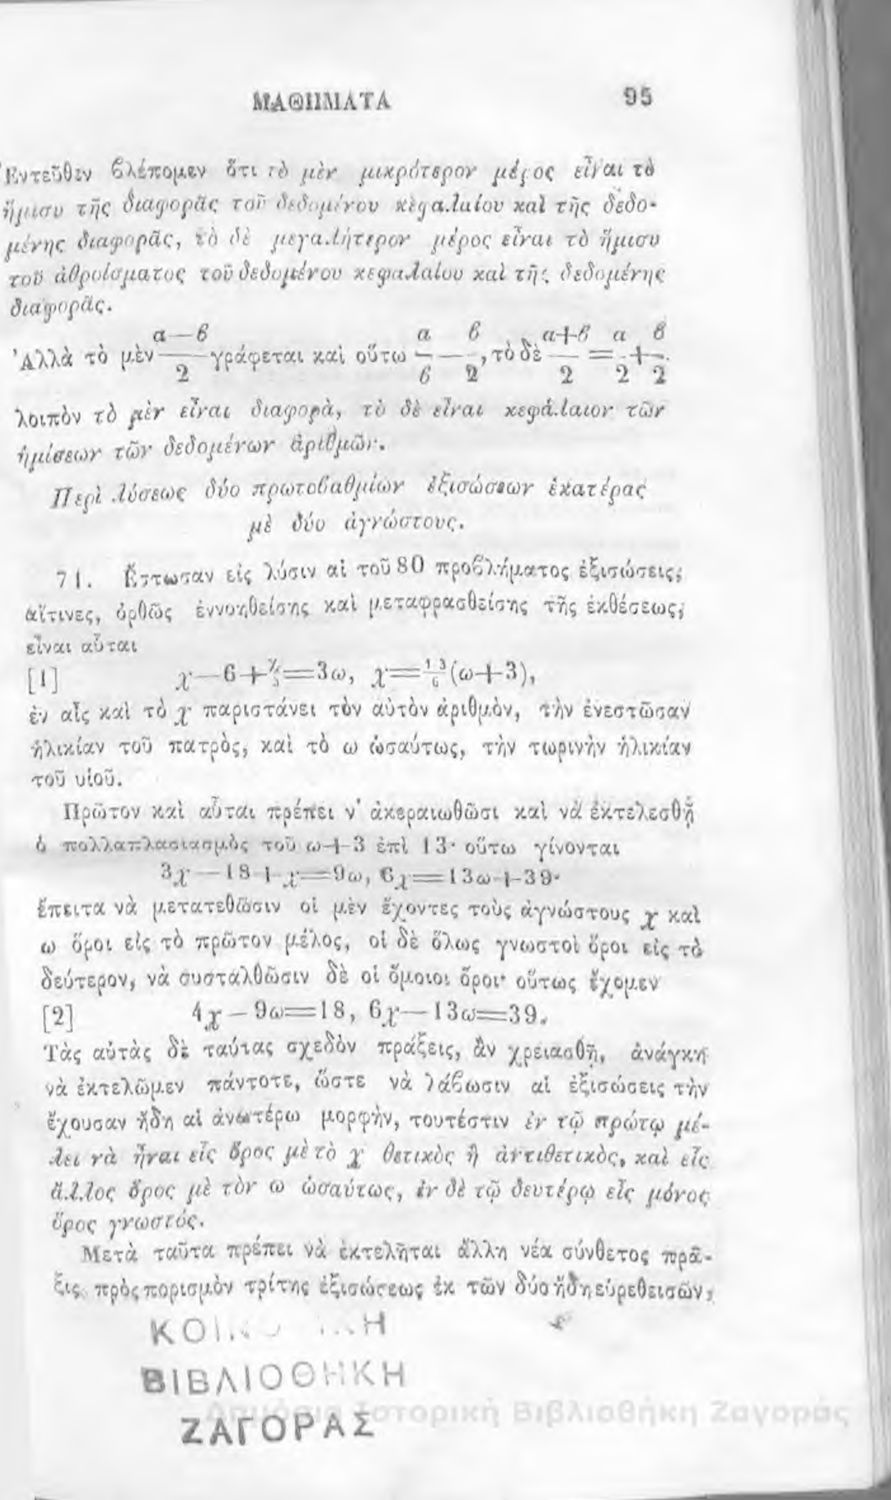 ΜΑΘΗΜΑΤΑ 95
Ἐντεῦθεν βλέπομεν ὅτι τὸ μὲν μικρότερον μέρος εἶναι τὸ
ἥμισυ τῆς διαφορᾶς τοῦ δεδομένου κεφαλαίου καὶ τῆς δεδο-
μένης διαφορᾶς, τὸ δὲ μεγαλήτερον μέρος εἶναι τὸ ἥμισυ
τοῦ ἀθροίσματος τοῦ δεδομένου κεφαλαίου καὶ τῆς δεδομένης
διαφορᾶς.
α—β α β α+β α β
Ἀλλὰ τὸ μὲν — γράφεται καὶ οὕτω — — —, τὸ δὲ — = — + —.
2 6 2 2 2 2
λοιπὸν τὸ μὲν εἶναι διαφορὰ, τὸ δὲ εἶναι κεφάλαιον τῶν
ἡμίσεων τῶν δεδομένων ἀριθμῶν.
Περὶ λύσεως δύο πρωτοβαθμίων ἐξισώσεων ἑκατέρας
μὲ δύο ἀγνώστους.
71. Ἔστωσαν εἰς λύσιν αἱ τοῦ 80 προβλήματος ἐξισώσεις,
αἵτινες, ὀρθῶς ἐννοηθείσης καὶ μεταφρασθείσης τῆς ἐκθέσεως,
εἶναι αὗται
[1] χ—6+χ/3=3ω, χ=13/6(ω+3),
ἐν αἷς καὶ τὸ χ παριστάνει τὸν αὐτὸν ἀριθμὸν, τὴν ἐνεστῶσαν
ἡλικίαν τοῦ πατρὸς, καὶ τὸ ω ὡσαύτως, τὴν τωρινὴν ἡλικίαν
τοῦ υἱοῦ.
Πρῶτον καὶ αὗται πρέπει ν' ἀκεραιωθῶσι καὶ νὰ ἐκτελεσθῇ
ὁ πολλαπλασιασμὸς τοῦ ω+3 ἐπὶ 13· οὕτω γίνονται
3χ—18+χ=9ω, 6χ=13ω+39·
ἔπειτα νὰ μετατεθῶσιν οἱ μὲν ἔχοντες τοὺς ἀγνώστους χ καὶ
ω ὅροι εἰς τὸ πρῶτον μέλος, οἱ δὲ ὅλως γνωστοὶ ὅροι εἰς τὸ
δεύτερον, νὰ συσταλθῶσιν δὲ οἱ ὅμοιοι ὅροι· οὕτως ἔχομεν
[2] 4χ—9ω=18, 6χ—13ω=39.
Τὰς αὐτὰς δὲ ταύτας σχεδὸν πράξεις, ἂν χρειασθῇ, ἀνάγκη
νὰ ἐκτελῶμεν πάντοτε, ὥστε νὰ λάβωσιν αἱ ἐξισώσεις τὴν
ἔχουσαν ἤδη αἱ ἀνωτέρω μορφὴν, τουτέστιν ἐν τῷ πρώτῳ μέ-
λει νὰ ἦναι εἷς ὅρος μὲ τὸ χ θετικὸς ἢ ἀντιθετικὸς, καὶ εἷς
ἄλλος ὅρος μὲ τὸν ω ὡσαύτως, ἐν δὲ τῷ δευτέρῳ εἷς μόνος
ὅρος γνωστός.
Μετὰ ταῦτα πρέπει νὰ ἐκτελῆται ἄλλη νέα σύνθετος πρᾶ-
ξις, πρὸς πορισμὸν τρίτης ἐξισώσεως ἐκ τῶν δύο ἤδη εὑρεθεισῶν,
ΒΙΒΛΙΟΘΗΚΗ
ΖΑΓΟΡΑΣ
Δημόσια Ιστορική Βιβλιοθήκη Ζαγοράς